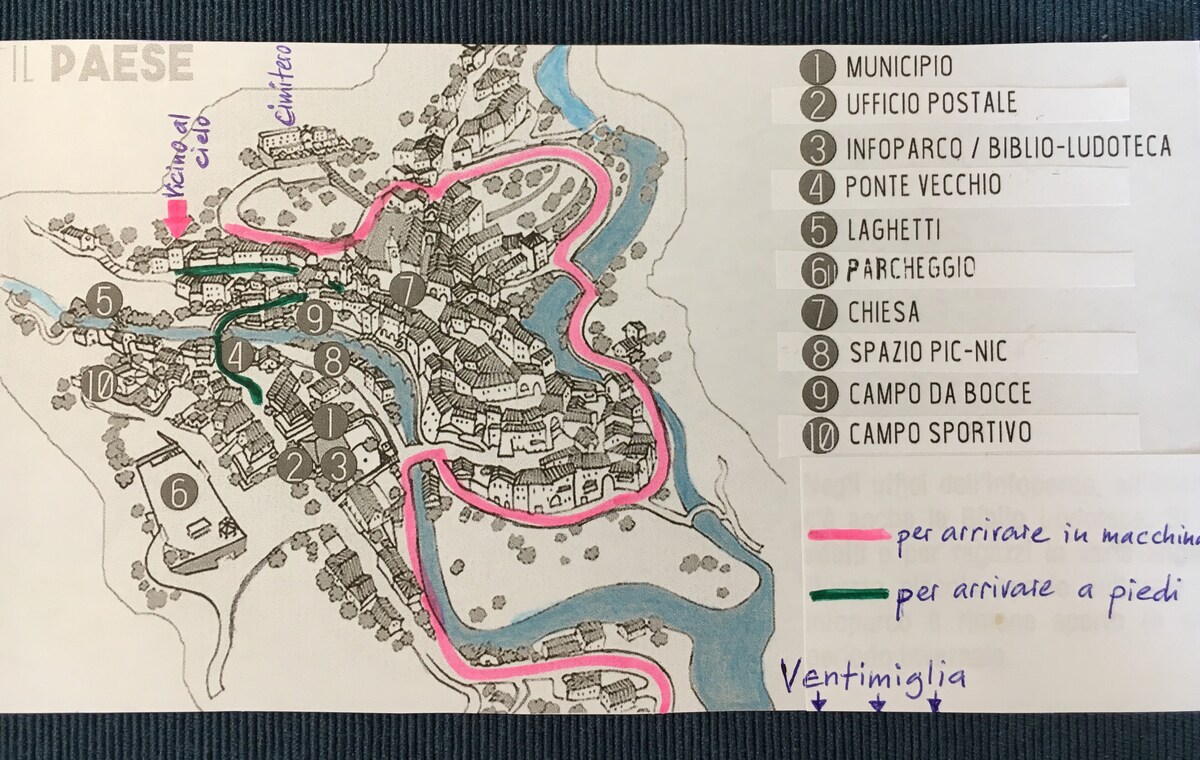 IL PAESE
Vicino al
cielo
Cimitero
1 MUNICIPIO
2 UFFICIO POSTALE
3 INFOPARCO / BIBLIO-LUDOTECA
4 PONTE VECCHIO
5 LAGHETTI
6 PARCHEGGIO
7 CHIESA
8 SPAZIO PIC-NIC
9 CAMPO DA BOCCE
10 CAMPO SPORTIVO
5
9
7
4
8
10
1
2
3
6
per arrivare in macchina
per arrivare a piedi
Ventimiglia